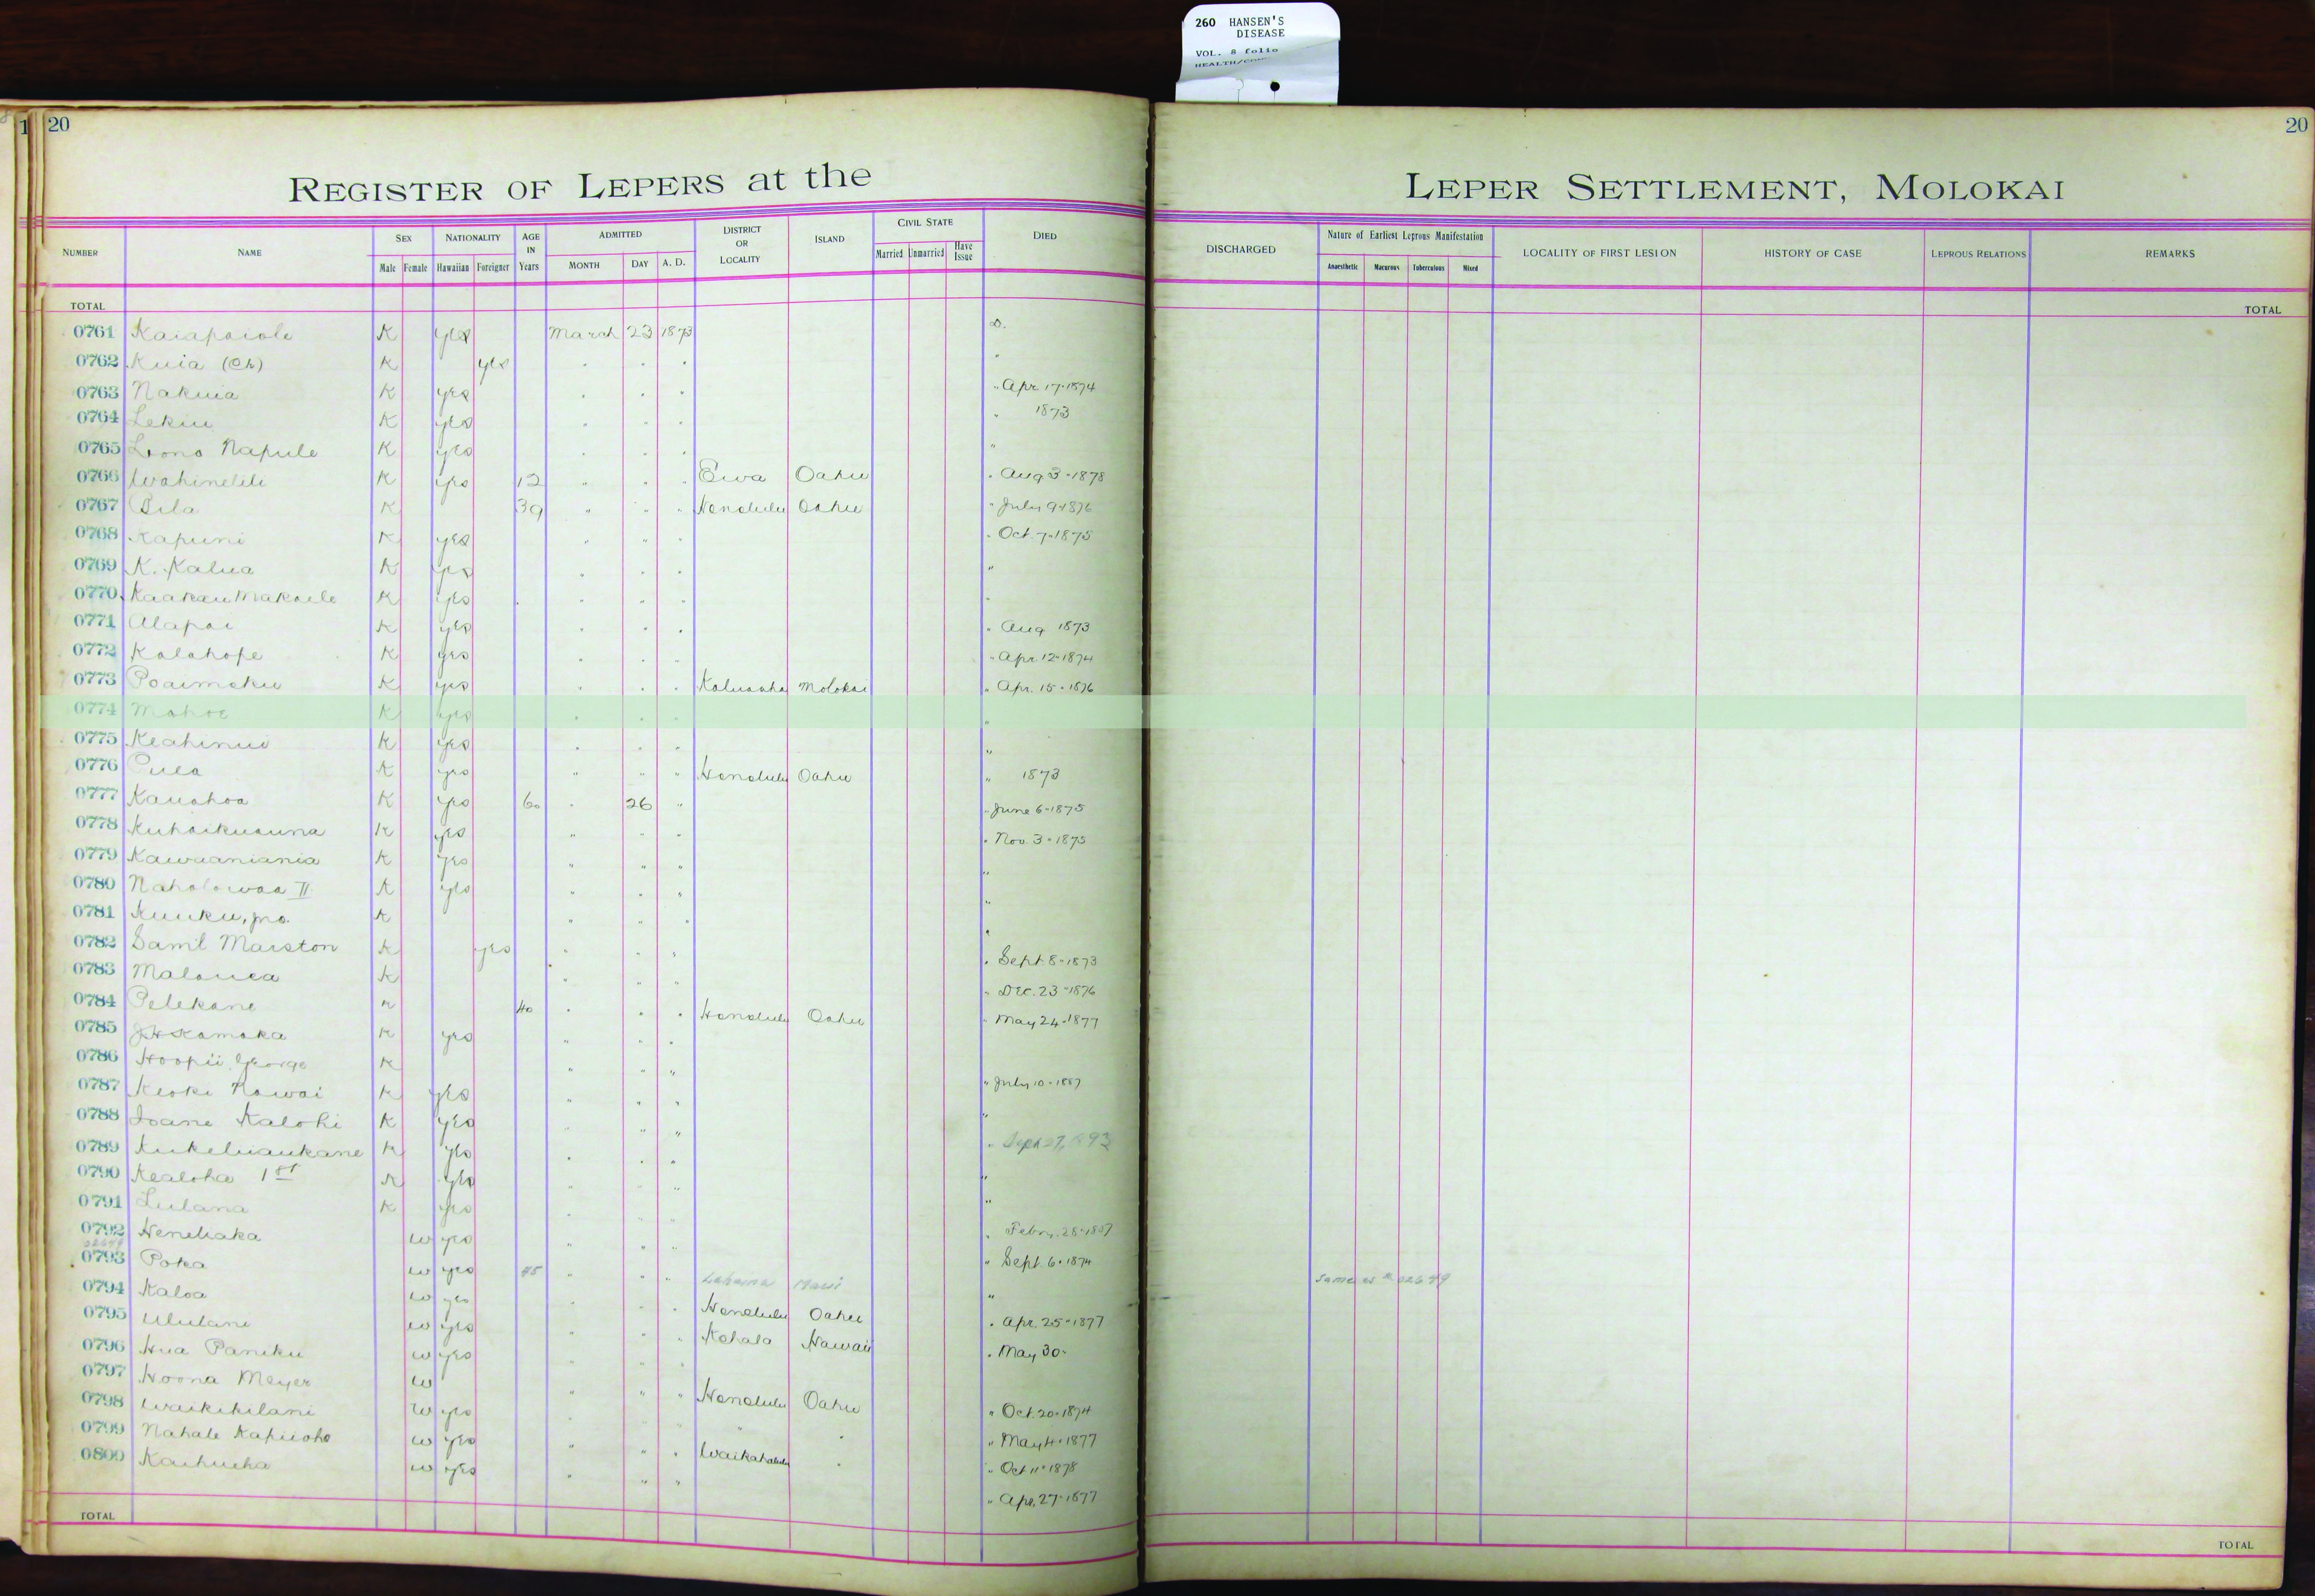 260 HANSEN'S
DISEASE
VOL. 8 folio
20
20
REGISTER OF LEPERS at the LEPER SETTLEMENT, MOLOKAI
NUMBER NAME SEX NATIONALITY AGE IN Years ADMITTED DISTRICT OR LOCALITY ISLAND CIVIL STATE DIED DISCHARGED Nature of Earliest Leprous Manifestation LOCALITY OF FIRST LESION HISTORY OF CASE LEPROUS RELATIONS REMARKS
Male Female Hawaiian Foreigner MONTH DAY A. D. Married Unmarried Have Issue Anaesthetic Macurous Tuberculous Mixed
TOTAL TOTAL
0761 Kaiapaiole K yes March 23 1873 D.
0762 Kuia (Ch) K yes " " " "
0763 Nakuia K yes " " " " Apr 17-1874
0764 Lekiu K yes " " " " 1873
0765 Lono Napule K yes " " " "
0766 Wahinelili K yes 12 " " " Ewa Oahu " Aug 3-1878
0767 Pila K 39 " " " Honolulu Oahu " July 9-1876
0768 Kapuni K yes " " " " Oct. 7-1875
0769 K. Kalua K yes " " " "
0770 Kaakau Makaele K yes " " " "
0771 Alapai K yes " " " " Aug 1873
0772 Kalahope K yes " " " " Apr. 12-1874
0773 Poaimoku K yes " " " Kaluaaha Molokai " Apr. 15-1876
0774 Mahoe K yes " " " "
0775 Keahinui K yes " " " "
0776 Pulea K yes " " " Honolulu Oahu " 1873
0777 Kauahoa K yes 60 " 26 " " June 6-1875
0778 Kuhaikuauna K yes " " " " Nov. 3-1875
0779 Kawaaniania K yes " " " "
0780 Naholowaa II K yes " " " "
0781 Kuuku, jno. K " " " "
0782 Saml Marston K yes " " " " Sept 8-1873
0783 Malanea K " " " " Dec. 23-1876
0784 Pelekane K 40 " " " Honolulu Oahu " May 24-1877
0785 J.H. Kamaka K yes " " "
0786 Hoopii George K " " " " July 10-1887
0787 Keoki Nawai K yes " " " "
0788 Ioane Kalohi K yes " " " " Sept 27, 1893
0789 Kukeluaukane K yes " " " "
0790 Kealoha 1st K yes " " " "
0791 Lulana K yes " " " " Febr. 28-1887
0792 Henehaka W yes " " " " Sept. 6-1874
02649
0793 Poka W yes 45 " " " Lahaina Maui " same as # 02649
0794 Kaloa W yes " " " Honolulu Oahu " Apr. 25-1877
0795 Ululani W yes " " " Kohala Hawaii " May 30-
0796 Hua Paniku W yes " " "
0797 Hoona Meyer W " " " Honolulu Oahu " Oct. 20-1874
0798 Waikikilani W yes " " " " " " May 4-1877
0799 Nahale Kapuoho W yes " " " Waikahalulu " " Oct 11-1878
0800 Kaihueha W yes " " " " Apr. 27-1877
TOTAL TOTAL